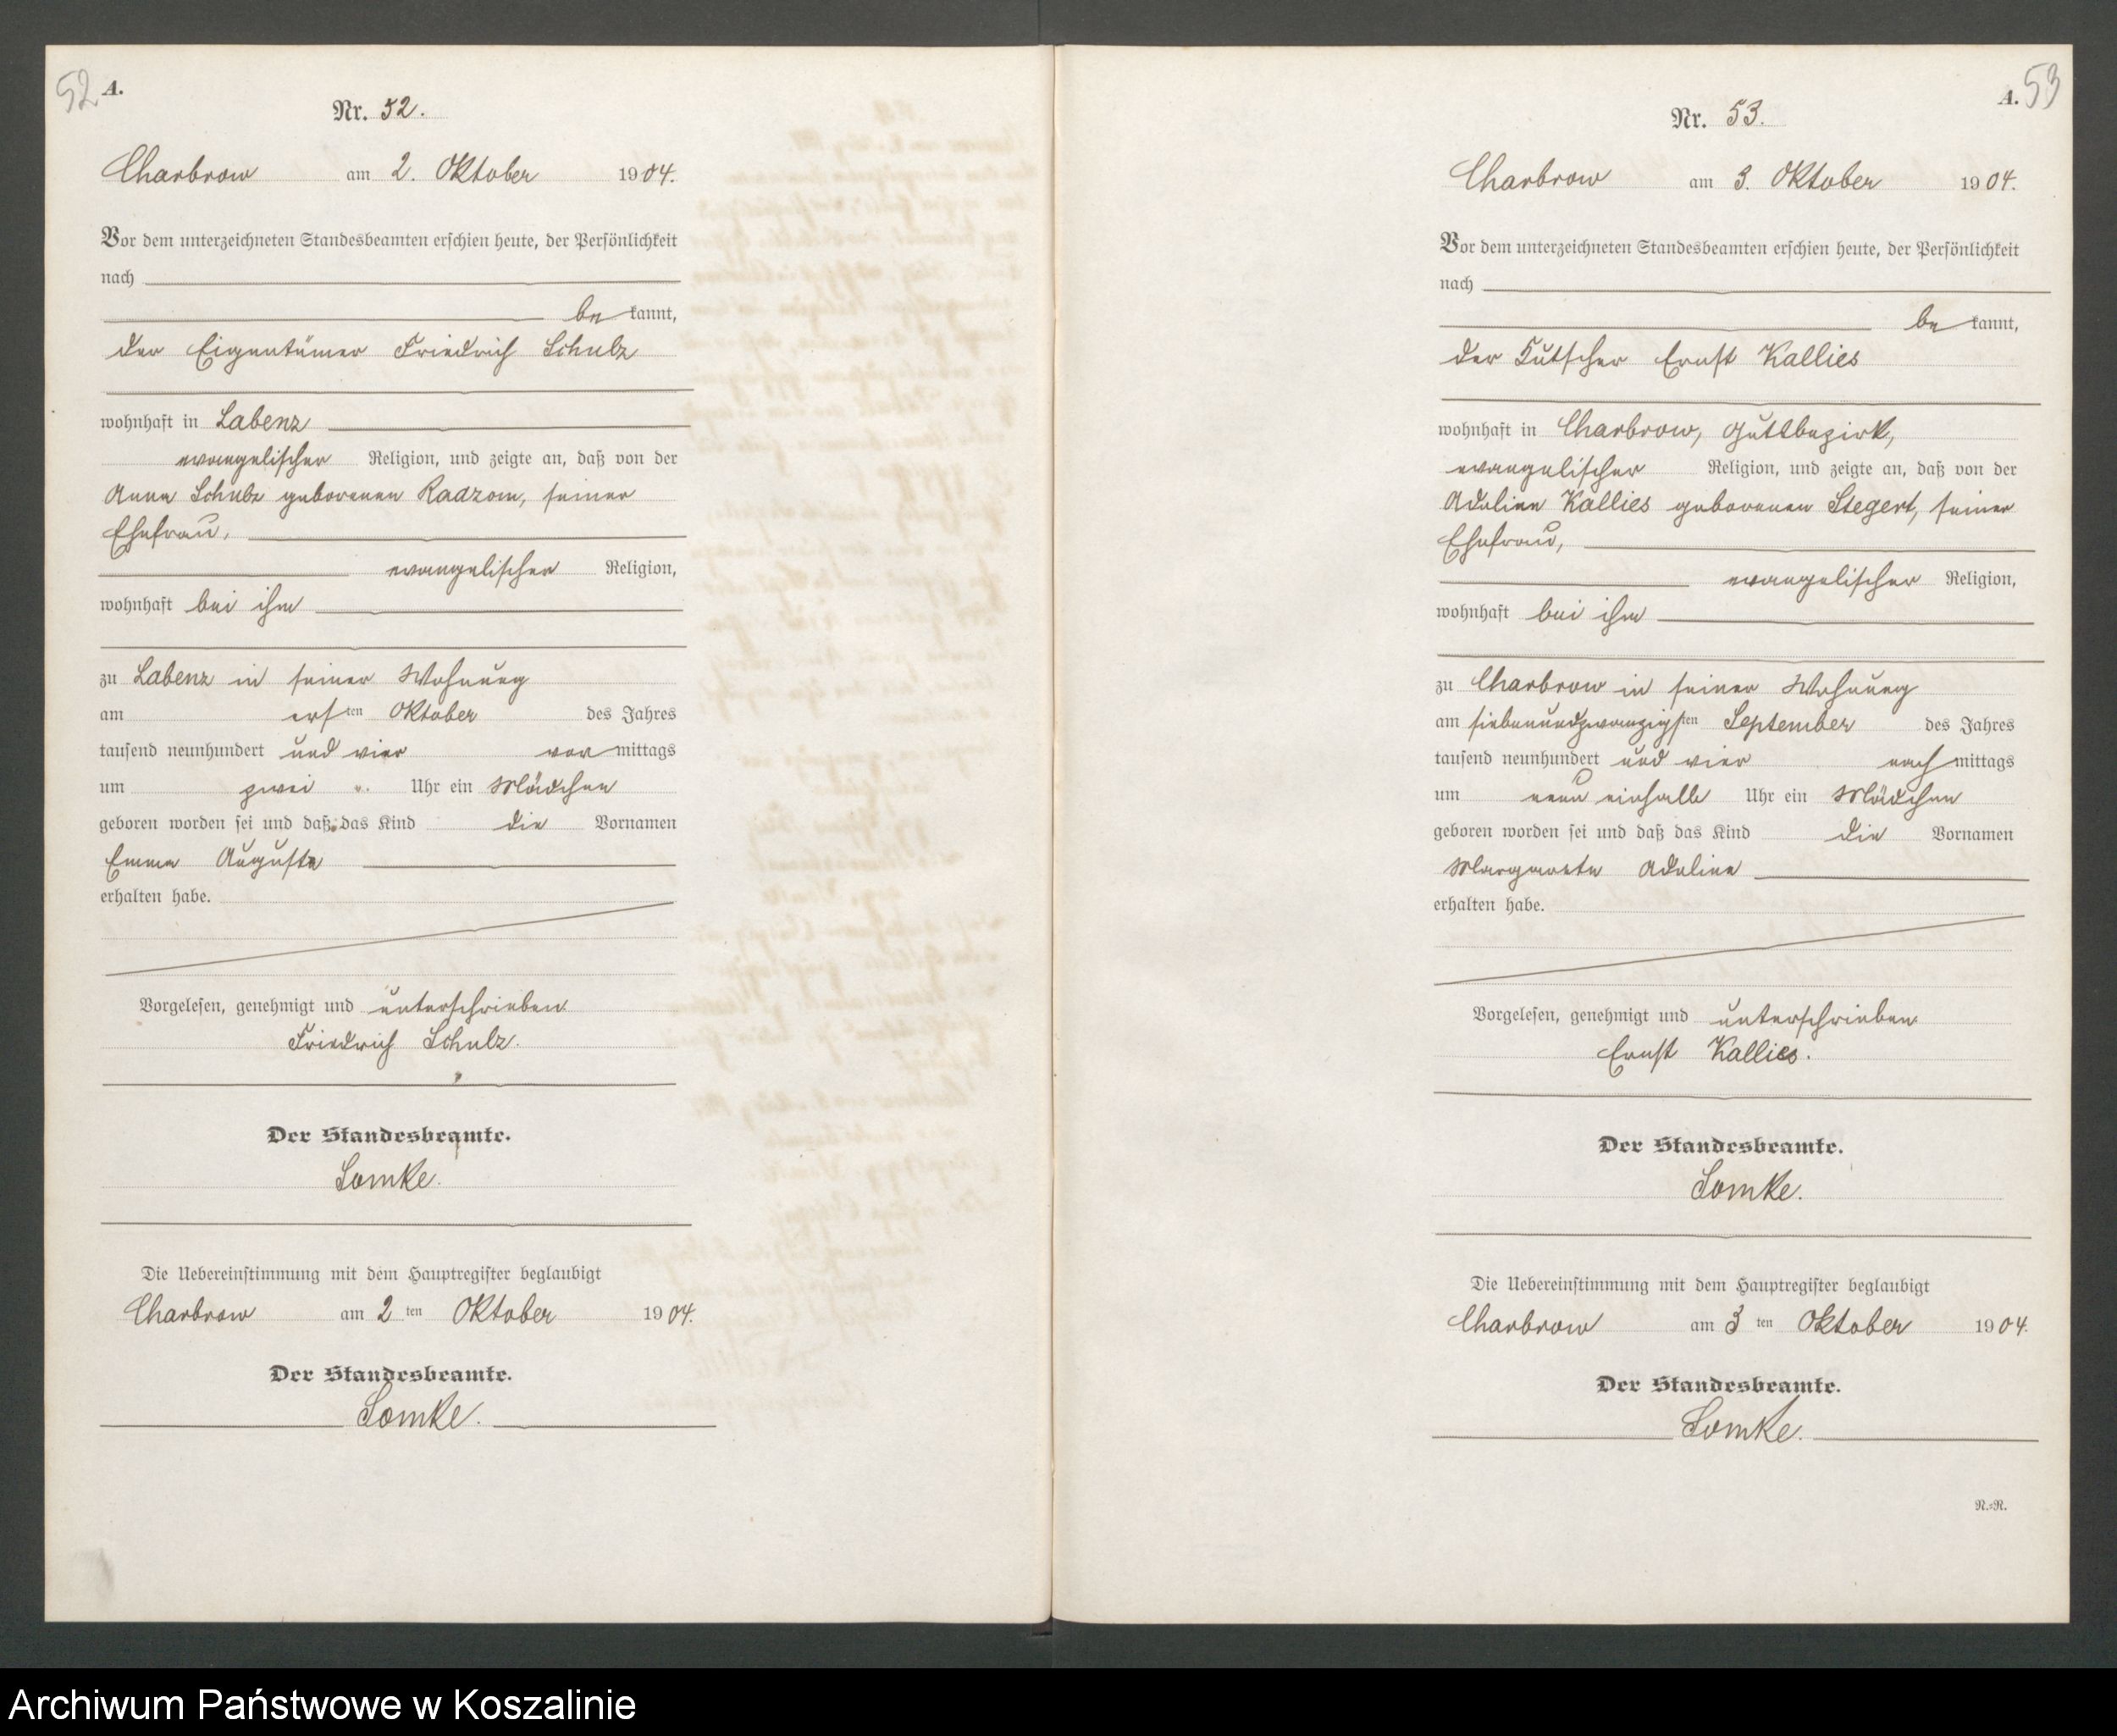 52 A.
Nr. 52.
Charbrow am 2. Oktober 1904.
Vor dem unterzeichneten Standesbeamten erschien heute, der Persönlichkeit
nach
be kannt,
der Eigentümer Friedrich Schulz
wohnhaft in Labenz
evangelischer Religion, und zeigte an, daß von der
Anna Schulz geborenen Radzom, seiner
Ehefrau,
evangelischer Religion,
wohnhaft bei ihm
zu Labenz in seiner Wohnung
am ersten Oktober des Jahres
tausend neunhundert und vier vor mittags
um zwei Uhr ein Mädchen
geboren worden sei und daß das Kind die Vornamen
Emma Auguste
erhalten habe.
Vorgelesen, genehmigt und unterschrieben
Friedrich Schulz.
Der Standesbeamte.
Lomke.
Die Uebereinstimmung mit dem Hauptregister beglaubigt
Charbrow am 2 ten Oktober 1904.
Der Standesbeamte.
Lomke.
A. 53
Nr. 53.
Charbrow am 3. Oktober 1904.
Vor dem unterzeichneten Standesbeamten erschien heute, der Persönlichkeit
nach
be kannt,
der Kutscher Ernst Kallies
wohnhaft in Charbrow, Gutsbezirk,
evangelischer Religion, und zeigte an, daß von der
Adeline Kallies geborenen Stegert, seiner
Ehefrau,
evangelischer Religion,
wohnhaft bei ihm
zu Charbrow in seiner Wohnung
am siebenundzwanzigsten September des Jahres
tausend neunhundert und vier nach mittags
um neun einhalb Uhr ein Mädchen
geboren worden sei und daß das Kind die Vornamen
Margarete Adeline
erhalten habe.
Vorgelesen, genehmigt und unterschrieben
Ernst Kallies.
Der Standesbeamte.
Lomke.
Die Uebereinstimmung mit dem Hauptregister beglaubigt
Charbrow am 3 ten Oktober 1904.
Der Standesbeamte.
Lomke.
N.=R.
Archiwum Państwowe w Koszalinie